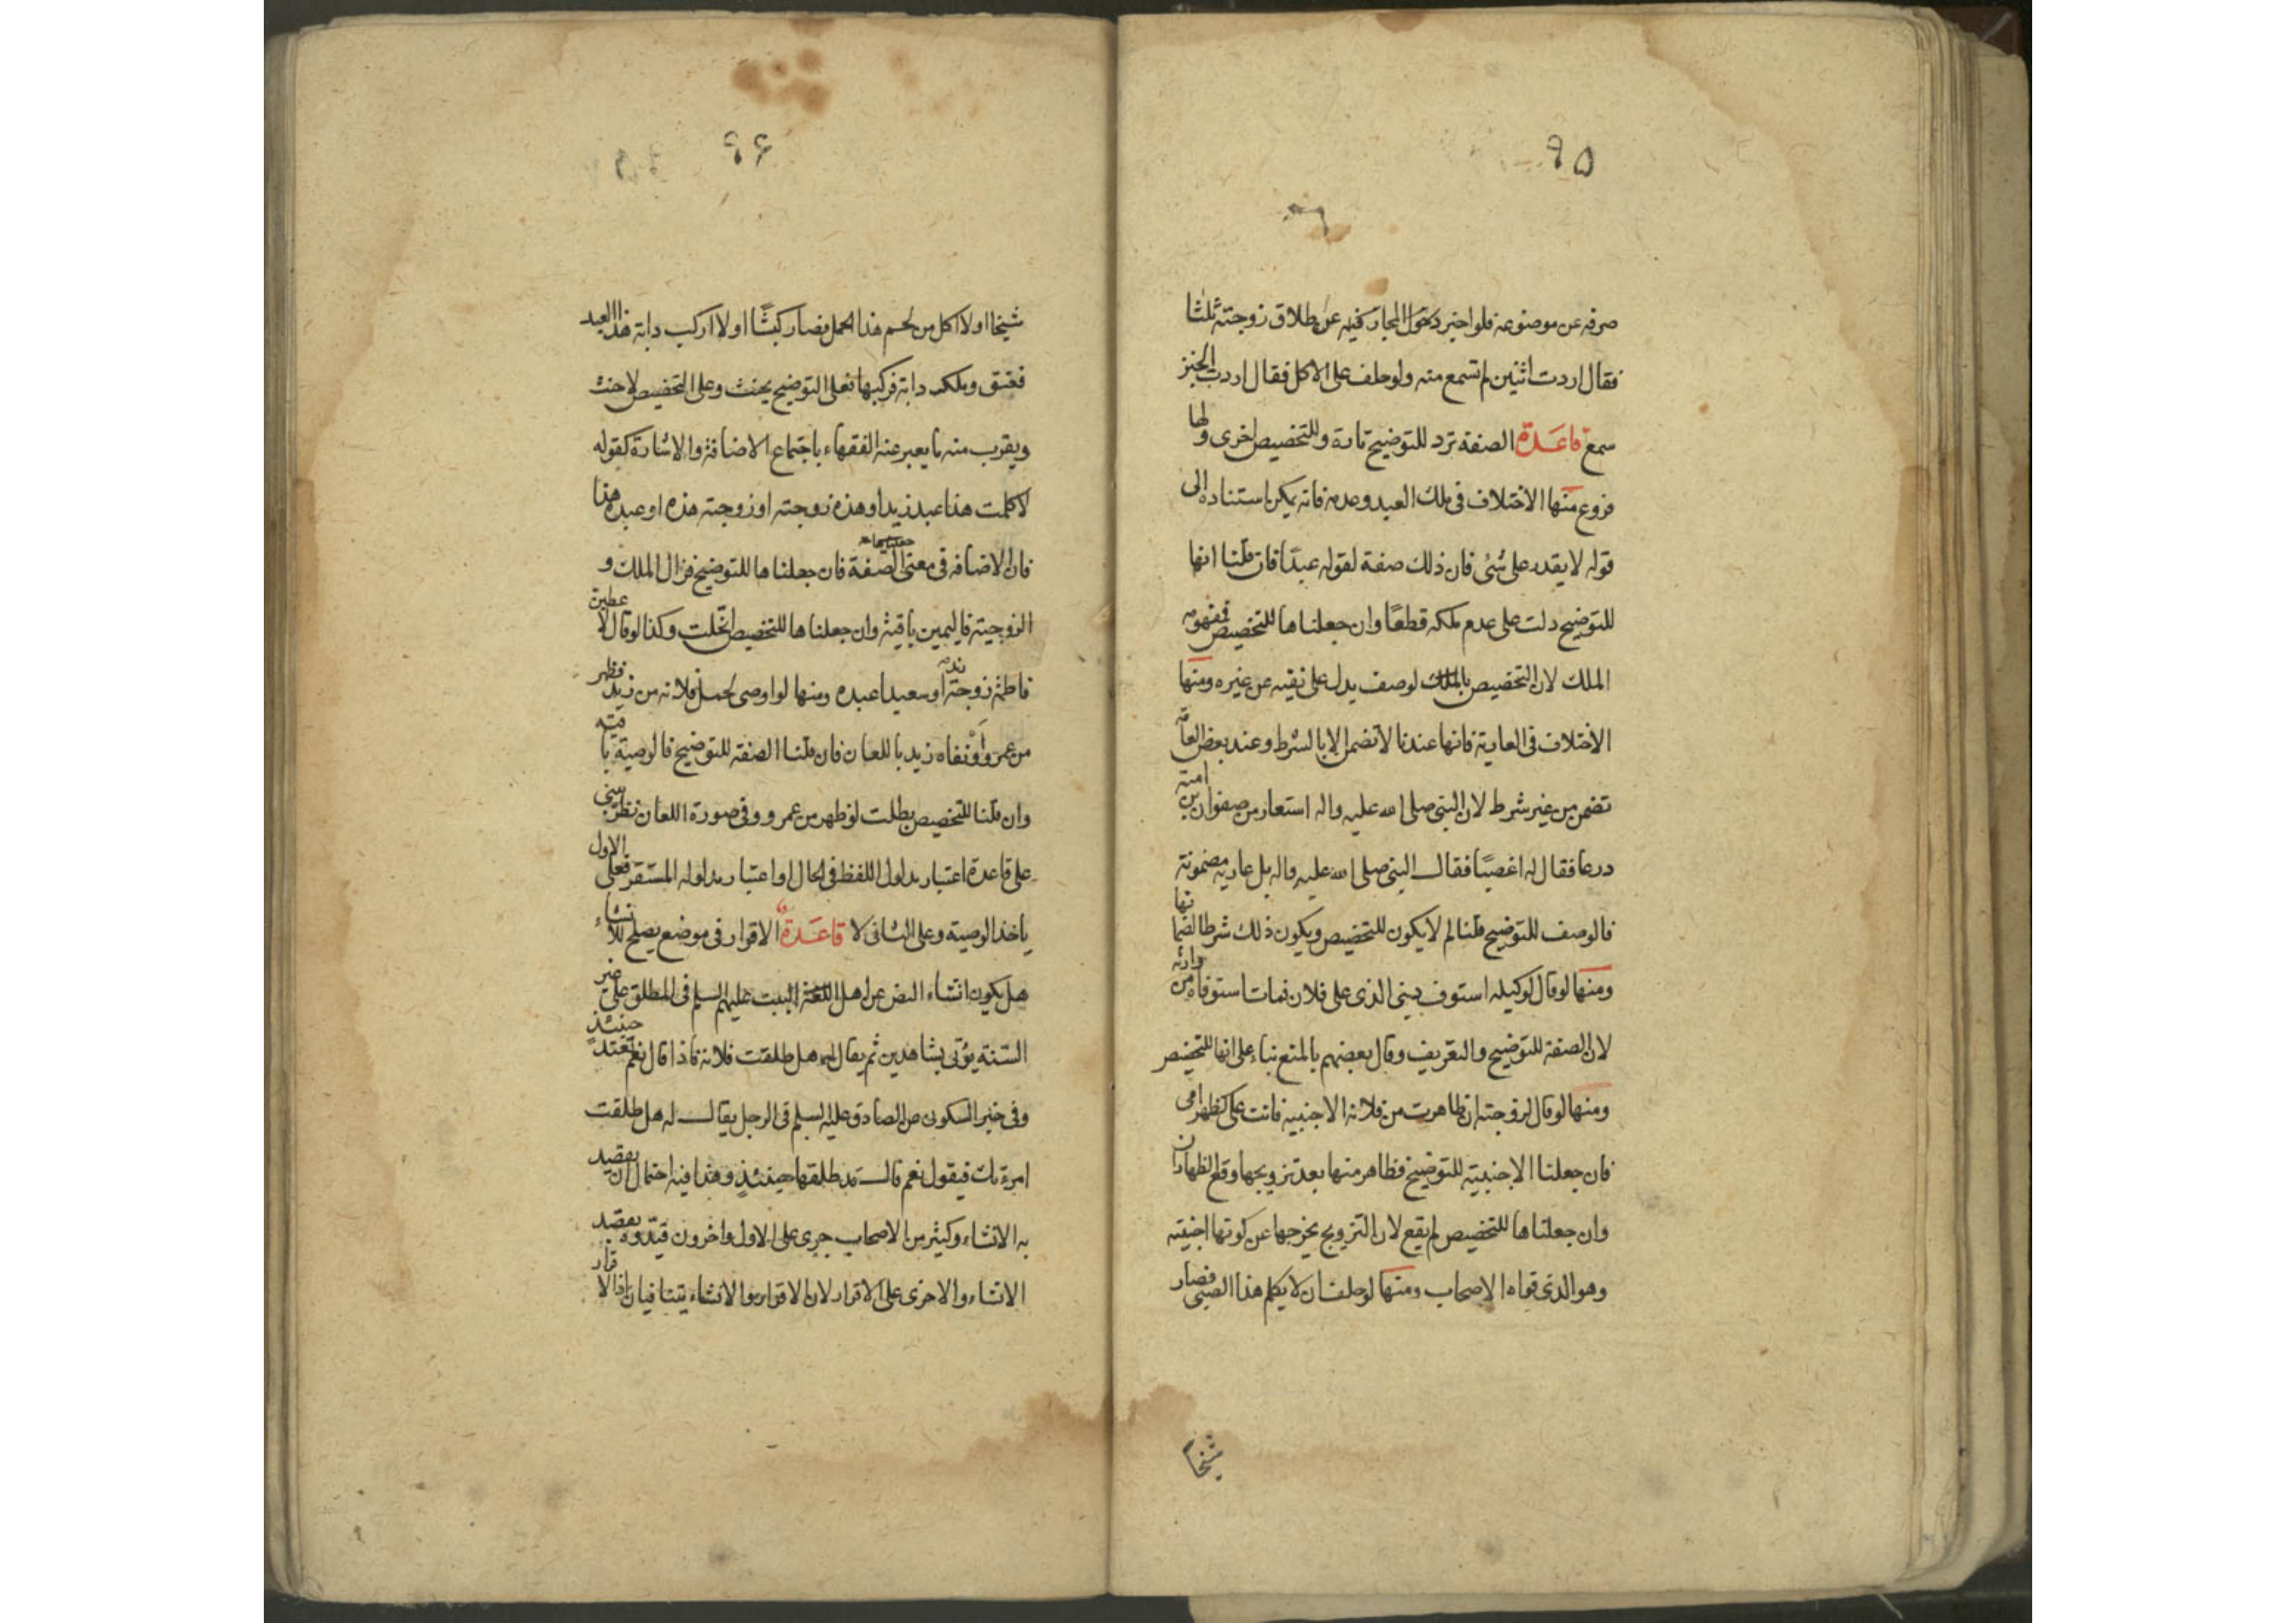 ٩٥
صرفه عن موضوعه فلو اخبر دخول المجاز فيه عن طلاق زوجته ثلثا
فقال اردت اثنين لم تسمع منه ولو حلف على الاكل فقال اردت الخبز
سمع قاعدة الصفة ترد للتوضيح تارة وللتخصيص اخرى ولها
فروع منها الاختلاف فى ملك العبد وعدمه فانه يمكن استناده الى
قوله لا يقدر على شئ فان ذلك صفة لقوله عبدا فان قلنا انها
للتوضيح دلت على عدم ملكه قطعا وان جعلناها للتخصيص فمفهومه
الملك لان التخصيص بالملك لوصف يدل على نفيه عن غيره ومنها
الاختلاف فى العارية فانها عندنا لا تضمن الا بالشرط وعند بعض العامة
تضمن من غير شرط لان النبى صلى الله عليه واله استعار من صفوان بن امية
درعا فقال له اغصبا فقال النبى صلى الله عليه واله بل عارية مضمونة
فالوصف للتوضيح قلنا لم لا يكون للتخصيص ويكون ذلك شرطا لضمانها
ومنها لو قال لوكيله استوف دينى الذى على فلان فمات استوفاه من وارثه
لان الصفة للتوضيح والتعريف وقال بعضهم بالمنع بناء على انها للتخصيص
ومنها لو قال لزوجته ان ظاهرت من فلانة الاجنبية فانت على كظهر امى
فان جعلنا الاجنبية للتوضيح فظاهر منها بعد تزويجها وقع الظهاران
وان جعلناها للتخصيص لم يقع لان التزويج يخرجها عن كونها اجنبية
وهو الذى قواه الاصحاب ومنها لو حلف ان لا يكلم هذا الصبى فصار
شيخا
٩٦
شيخا او لا اكل من لحم هذا الحمل فصار كبشا او لا اركب دابة هذا العبد
فعتق وملك دابة فركبها فعلى التوضيح يحنث وعلى التخصيص لا حنث
ويقرب منه ما يعبر عنه الفقهاء باجتماع الاضافة والاشارة كقوله
لا كلمت هذا عبد زيد او هذه زوجته او زوجته هذه او عبده هذا
فان الاضافة فى معنى الصفة فان جعلناها للتوضيح فزال الملك و
الزوجية فاليمين باقية وان جعلناها للتخصيص انحلت وكذا لو قال لا
فاطمة زوجة زيد او سعيدا عبده ومنها لو اوصى لحمل فلانة من زيد فظهر
من عمرو او نفاه زيد باللعان فان قلنا الصفة للتوضيح فالوصية باقية
وان قلنا للتخصيص بطلت لو ظهر من عمرو وفى صورة اللعان نظر يبنى
على قاعدة اعتبار مدلول اللفظ فى الحال او اعتبار مدلوله المستقر فعلى الاول
ياخذ الوصية وعلى الثانى لا قاعدة الاقرار فى موضع يصلح للانشاء
هل يكون انشاء النص عن اهل البيت عليهم السلم فى المطلق على غير
السنة يؤتى بشاهدين ثم يقال له هل طلقت فلانة فاذا قال نعم تعتد حينئذ
وفى خبر السكونى عن الصادق عليه السلم فى الرجل يقال له هل طلقت
امرءتك فيقول نعم قال قد طلقها حينئذ وهذا فيه احتمال ان يقصد
به الانشاء وكثير من الاصحاب جرى على الاول واخرون قيدوه بقصد
الانشاء والا جرى على الاقرار لان الاقرار والانشاء يتنافيان اذ الاقرار